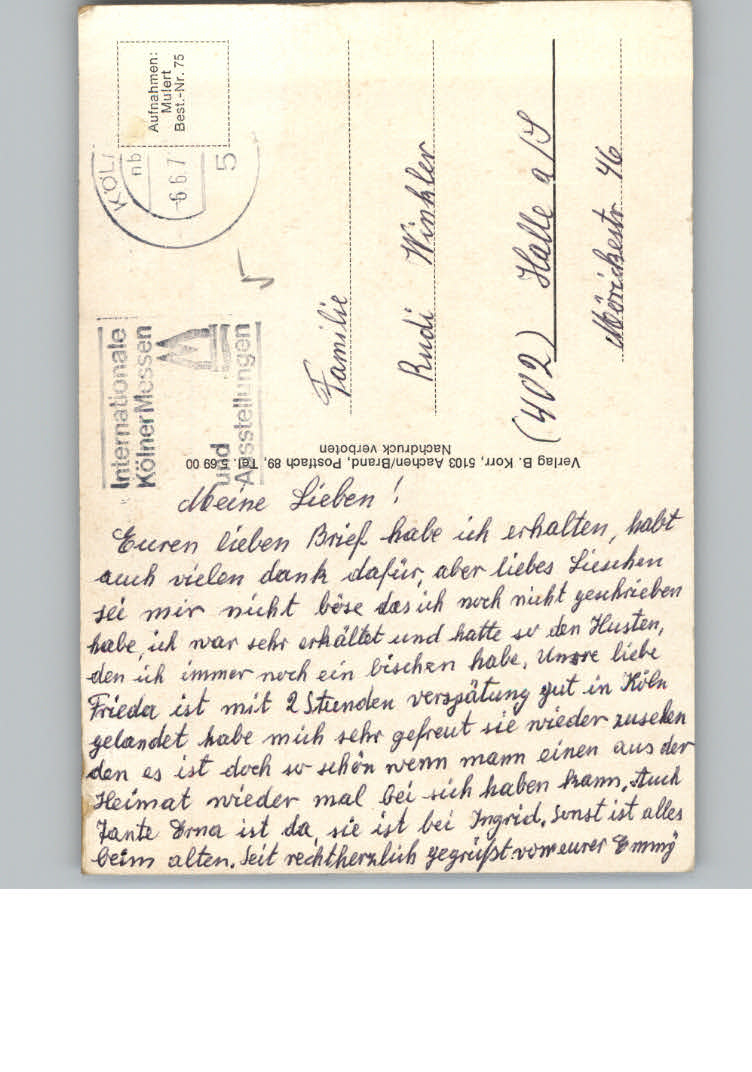 Aufnahmen:
Mulert
Best.-Nr. 75
KÖL
nb
-6.6.7
5
Internationale
KölnerMessen
und
Ausstellungen
Familie
Rudi Winkler
(402) Halle a/S
Mörickestr 46
Verlag B. Korr, 5103 Aachen/Brand, Postfach 89, Tel. 5 69 00
Nachdruck verboten
Meine Lieben!
Euren lieben Brief habe ich erhalten, habt
auch vielen dank dafür, aber liebes Lieschen
sei mir nicht böse das ich noch nicht geschrieben
habe, ich war sehr erkältet und hatte so den Husten,
den ich immer noch ein bischen habe. Unsre liebe
Frieda ist mit 2 Stunden verspätung gut in Köln
gelandet habe mich sehr gefreut sie wieder zusehen
den es ist doch so schön wenn mann einen aus der
Heimat wieder mal bei sich haben kann. Auch
Tante Erna ist da, sie ist bei Ingrid. Sonst ist alles
beim alten. Seit rechtherzlich gegrüßt von eurer Emmy